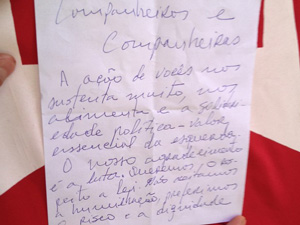 Companheiros e
Companheiras
A ação de vocês nos
sustenta muito, nos
alimenta e a solidari-
edade política - valor
essencial da esquerda.
O nosso agradecimento
é a luta. Queremos, o res-
peito a lei. Não aceitamos
a humilhação, preferimos
o risco e a dignidade